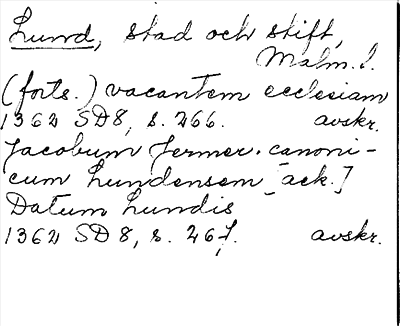 Lund, stad och stift,
Malm. l.
(forts.) vacantem ecclesiam
1362 SD8, s. 266. avskr.
Jacobum Fermer. canoni-
cum Lundensem [ack.]
Datum Lundis
1362 SD8, s. 267. avskr.